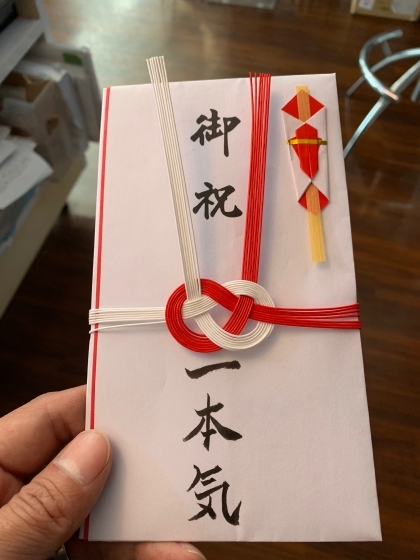 御祝
一本気